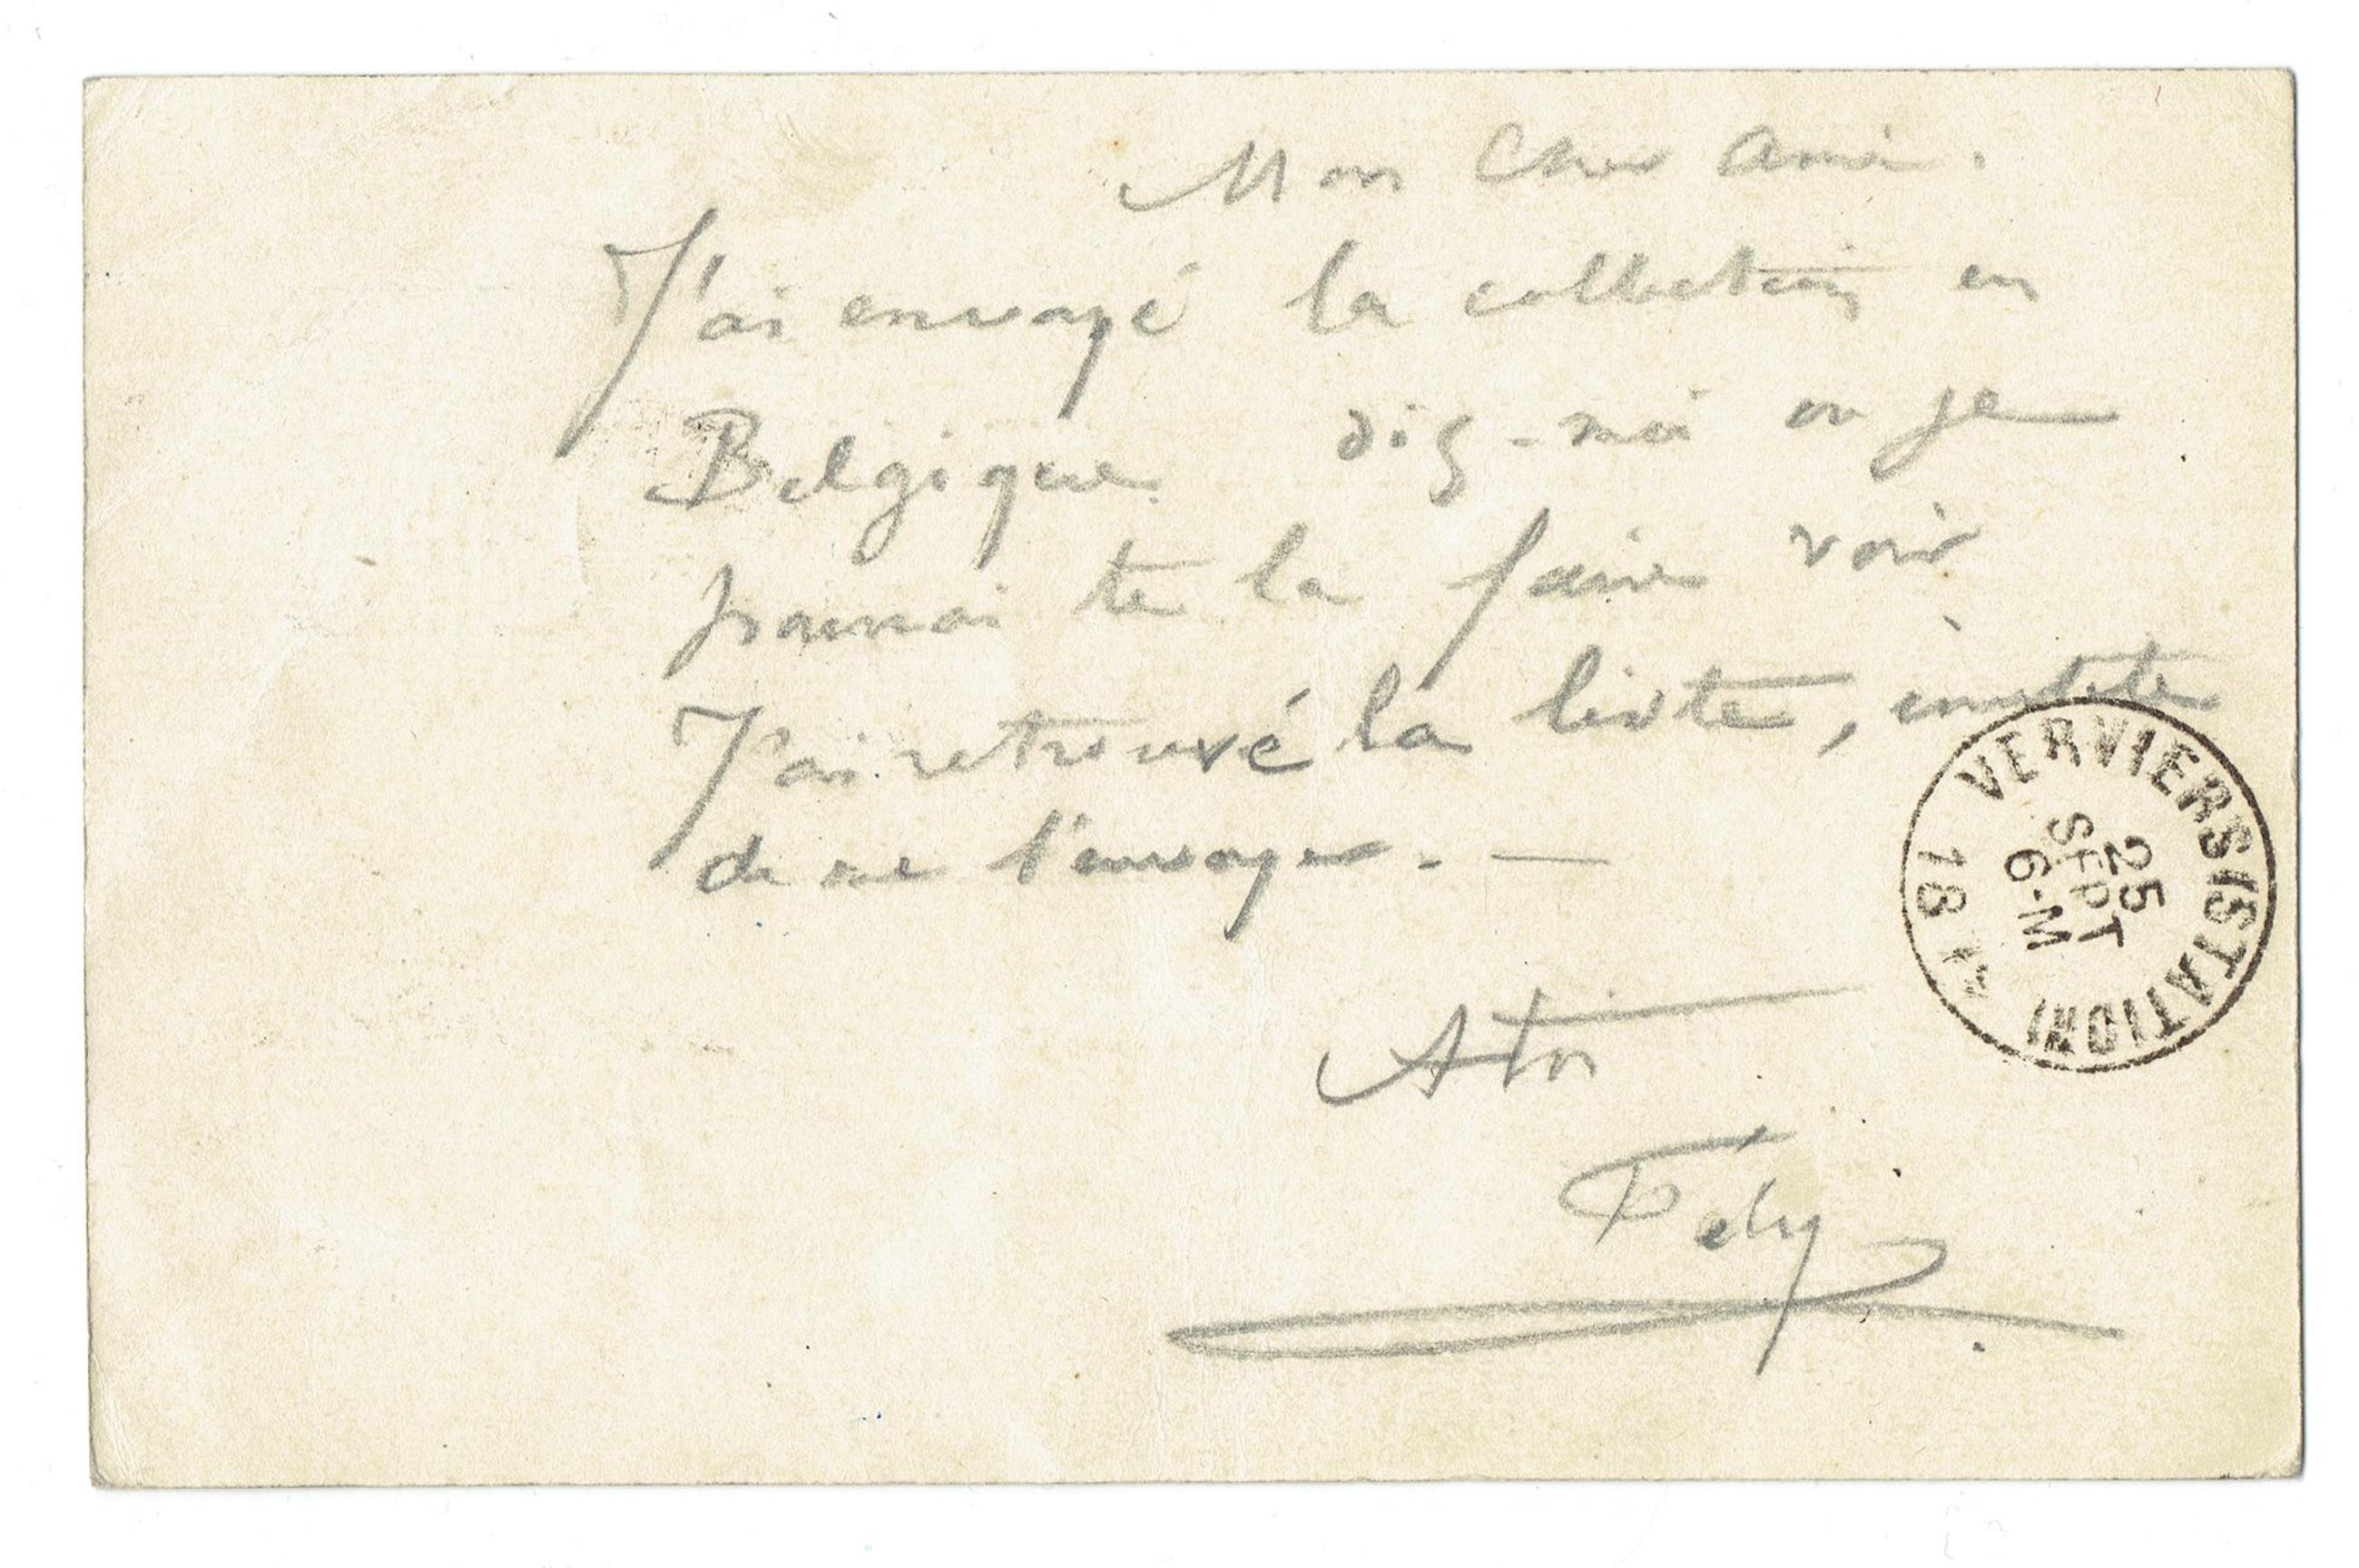 Mon Cher Ami.
J'ai envoyé la collection en
Belgique. dis-moi ou je
pourrai te la faire voir
J'ai retrouvé la liste, inutile
de me l'envoyer. —
A toi
Fély
VERVIERS (STATION)
25
SEPT
6-M
18